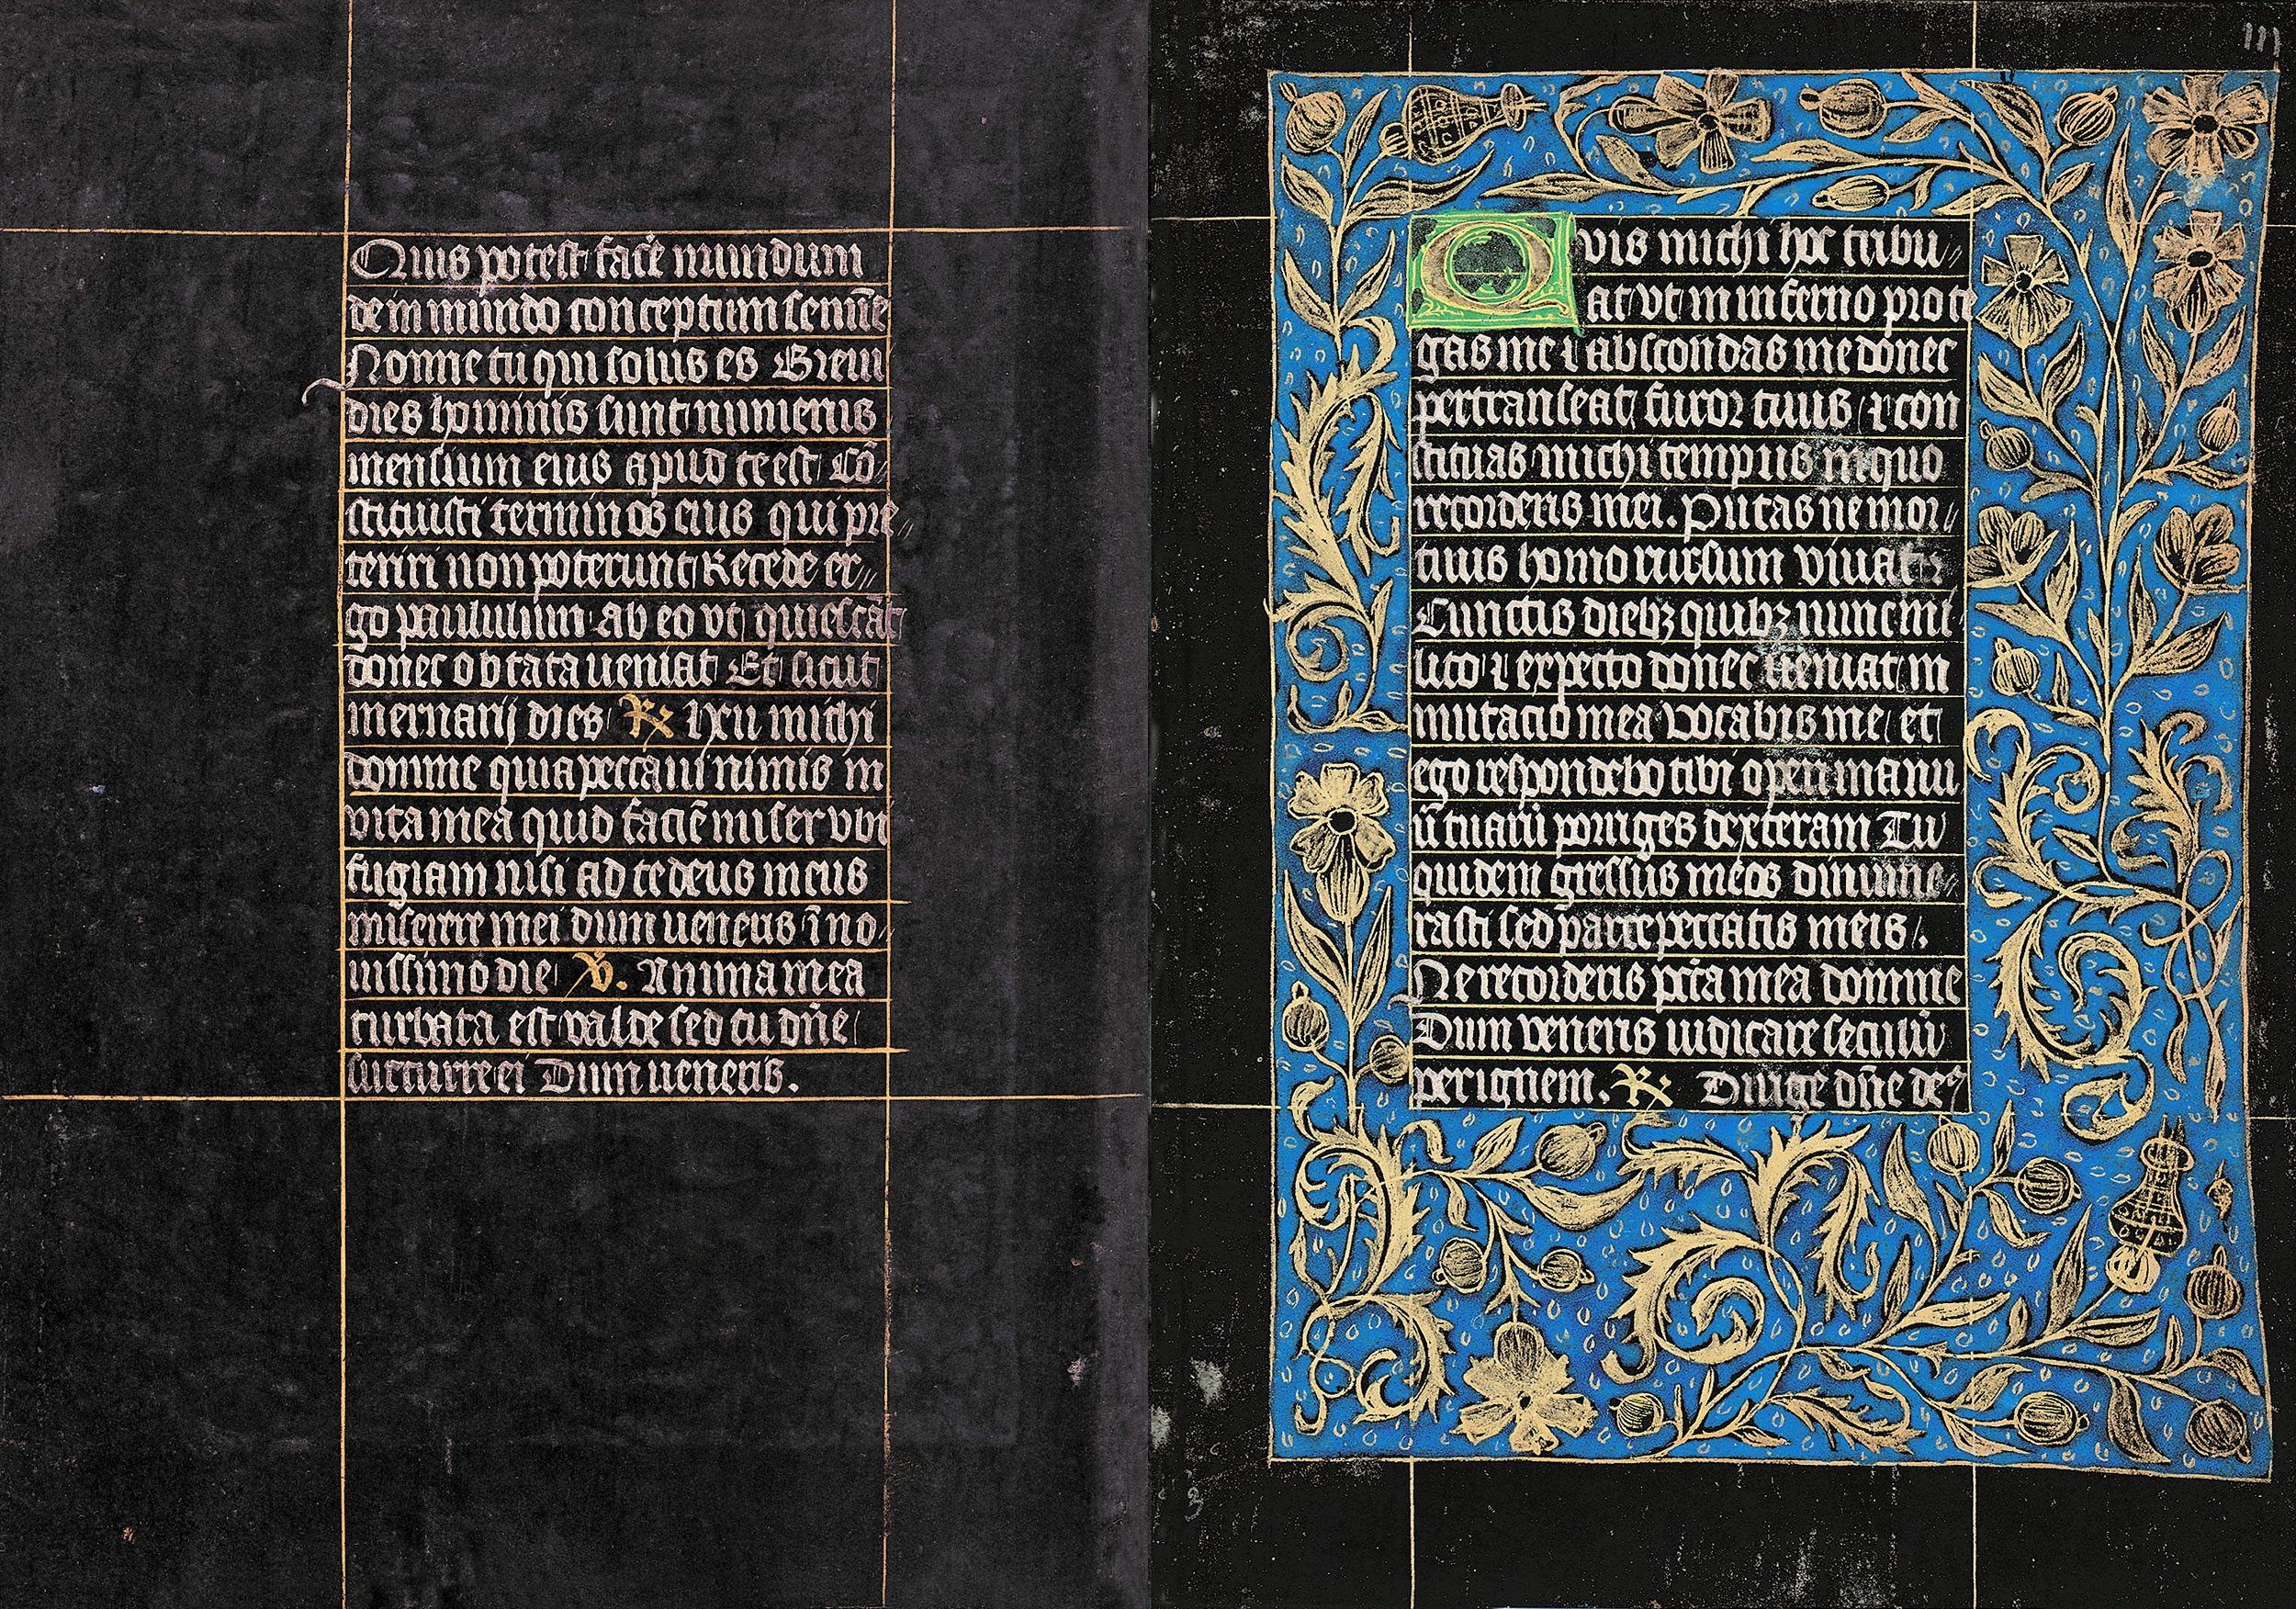 Quis potest facē mundum
dem mundo conceptum semīe
Nonne tu qui solus es Breui
dies hominis sunt numerus
mensium eius apud te est Cō
stituisti terminos eius qui pre
teriri non poterunt Recede er
go paululum ab eo vt quiescāt
donec obtata ueniat Et sicut
mernarij dies ℟ lxii michi
domine quia peccaui nimis in
vita mea quid faciē miser vbi
fugiam nisi ad te deus meus
miserere mei dum ueneris ī no
uissimo die ℣. Anima mea
turbata est valde sed tu dn̄e
succurre ei Dum ueneris.
Qvis michi hoc tribu
at vt in inferno prote
gas me ⁊ abscondas me donec
pertranseat furor tuus ⁊ con
stituas michi tempus in quo
recorderis mei. Putas ne mor
tuus homo rursum viuat
Cunctis diebꝫ quibꝫ nunc mi
lito ⁊ expecto donec ueniat in
mutacio mea vocabis me et
ego respondebo tibi operi manu
ū tuarū porriges dexteram Tu
quidem gressus meos dinume
rasti sed parce peccatis meis.
Ne recorderis pctā mea domine
Dum veneris iudicare seculū
per ignem. ℟ Dirige dn̄e de⁹
III
3